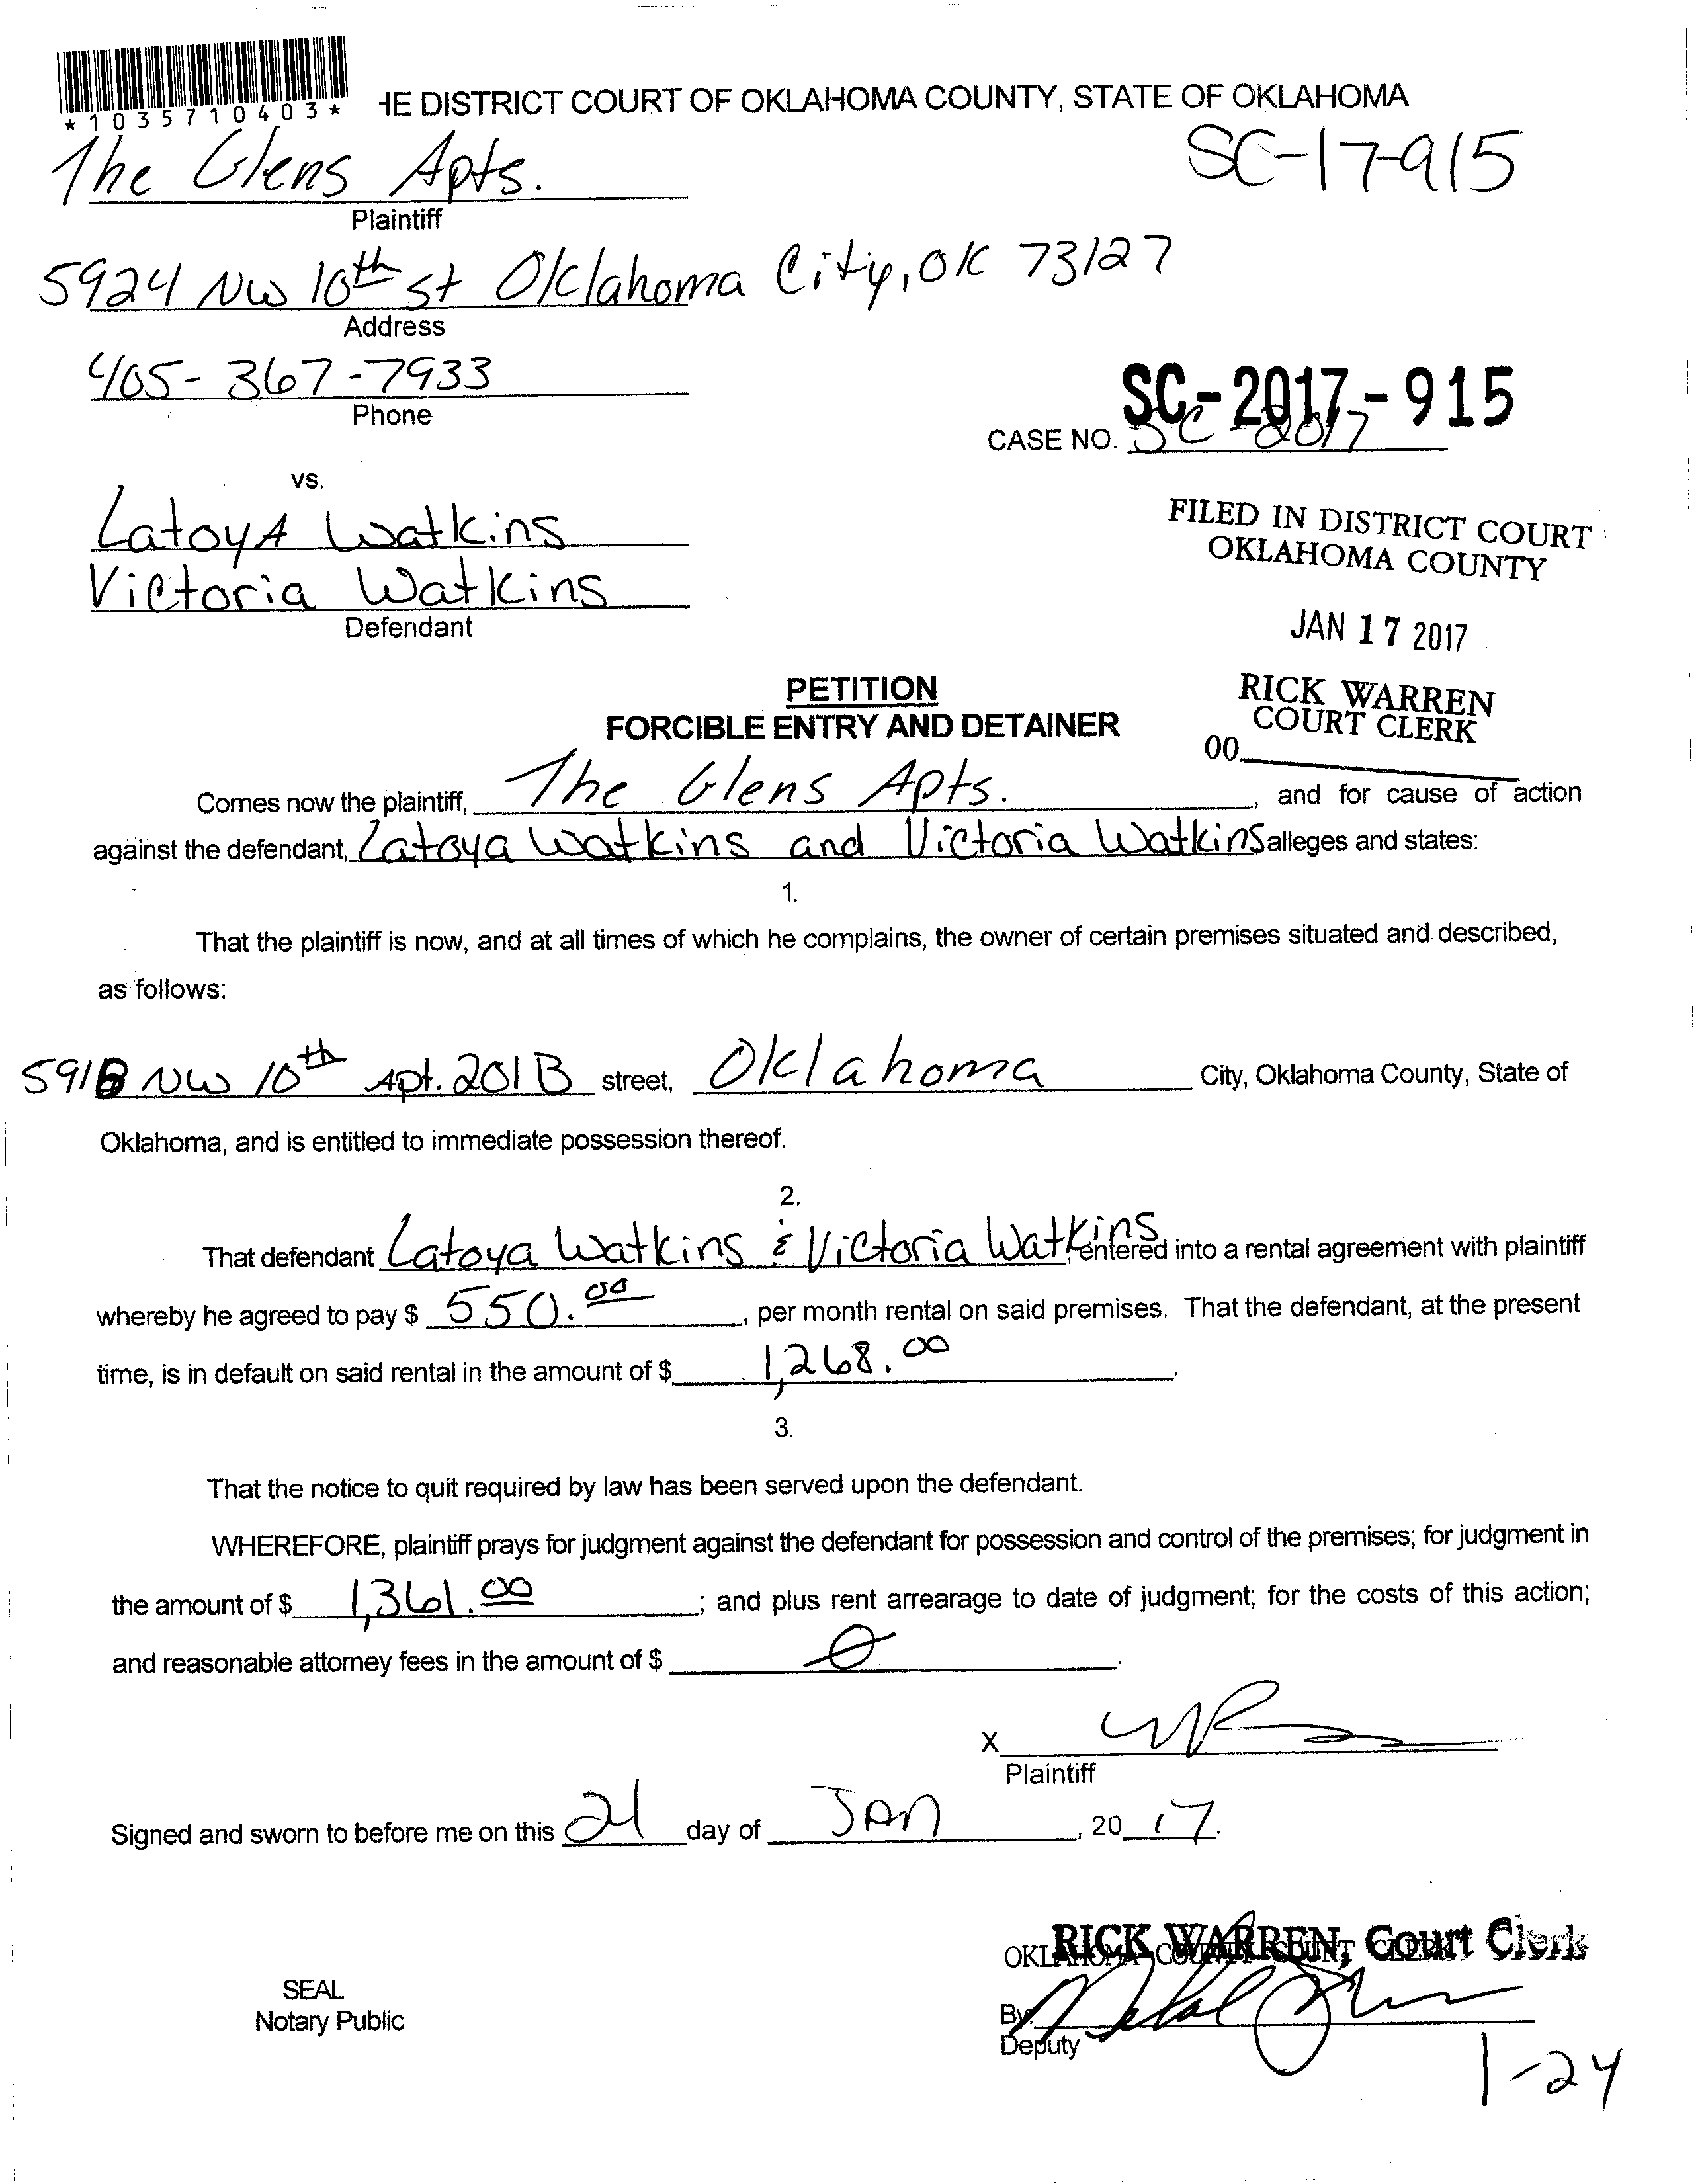 *1035710403*
HE DISTRICT COURT OF OKLAHOMA COUNTY, STATE OF OKLAHOMA
The Glens Apts.
SC-17-915
Plaintiff
5924 NW 10th st Oklahoma City, OK 73127
Address
405-367-7933
Phone
SC-2017-915
CASE NO. SC-2017
vs.
LatoyA Watkins
Victoria Watkins
Defendant
FILED IN DISTRICT COURT
OKLAHOMA COUNTY
JAN 17 2017
RICK WARREN
COURT CLERK
00
PETITION
FORCIBLE ENTRY AND DETAINER
Comes now the plaintiff, The Glens Apts. , and for cause of action
against the defendant, Latoya Watkins and Victoria Watkins alleges and states:
1.
That the plaintiff is now, and at all times of which he complains, the owner of certain premises situated and described,
as follows:
591B NW 10th Apt. 201B street, Oklahoma City, Oklahoma County, State of
Oklahoma, and is entitled to immediate possession thereof.
2.
That defendant Latoya Watkins & Victoria Watkins, entered into a rental agreement with plaintiff
whereby he agreed to pay $ 550.00 , per month rental on said premises. That the defendant, at the present
time, is in default on said rental in the amount of $ 1,268.00 .
3.
That the notice to quit required by law has been served upon the defendant.
WHEREFORE, plaintiff prays for judgment against the defendant for possession and control of the premises; for judgment in
the amount of $ 1,361.00 ; and plus rent arrearage to date of judgment; for the costs of this action;
and reasonable attorney fees in the amount of $ 0 .
X
Plaintiff
Signed and sworn to before me on this day of JAN , 20 17.
RICK WARREN, Court Clerk
OKLAHOMA COUNTY COURT CLERK
SEAL
Notary Public
By
Deputy
1-24